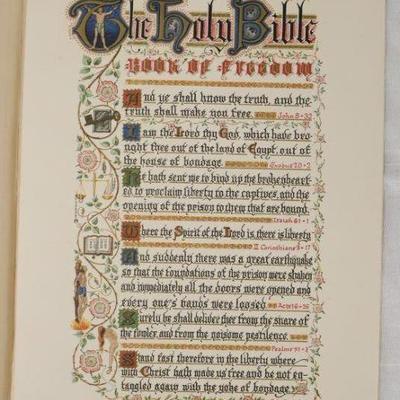 The Holy Bible
BOOK OF FREEDOM
And ye shall know the truth, and the
truth shall make you free. John 8 · 32
I am the Lord thy God, which have bro
ught thee out of the land of Egypt, out of
the house of bondage. Exodus 20 · 2
He hath sent me to bind up the brokenheart
ed to proclaim liberty to the captives, and the
opening of the prison to them that are bound.
Isaiah 61 · 1
Where the Spirit of the Lord is there is liberty
II Corinthians 3 · 17
And suddenly there was a great earthquake
so that the foundations of the prison were shaken
and immediately all the doors were opened and
every one's bands were loosed. Acts 16 · 26
Surely he shall deliver thee from the snare of
the fowler, and from the noisome pestilence.
Psalms 91 · 3
Stand fast therefore in the liberty where
with Christ hath made us free and be not en
tangled again with the yoke of bondage